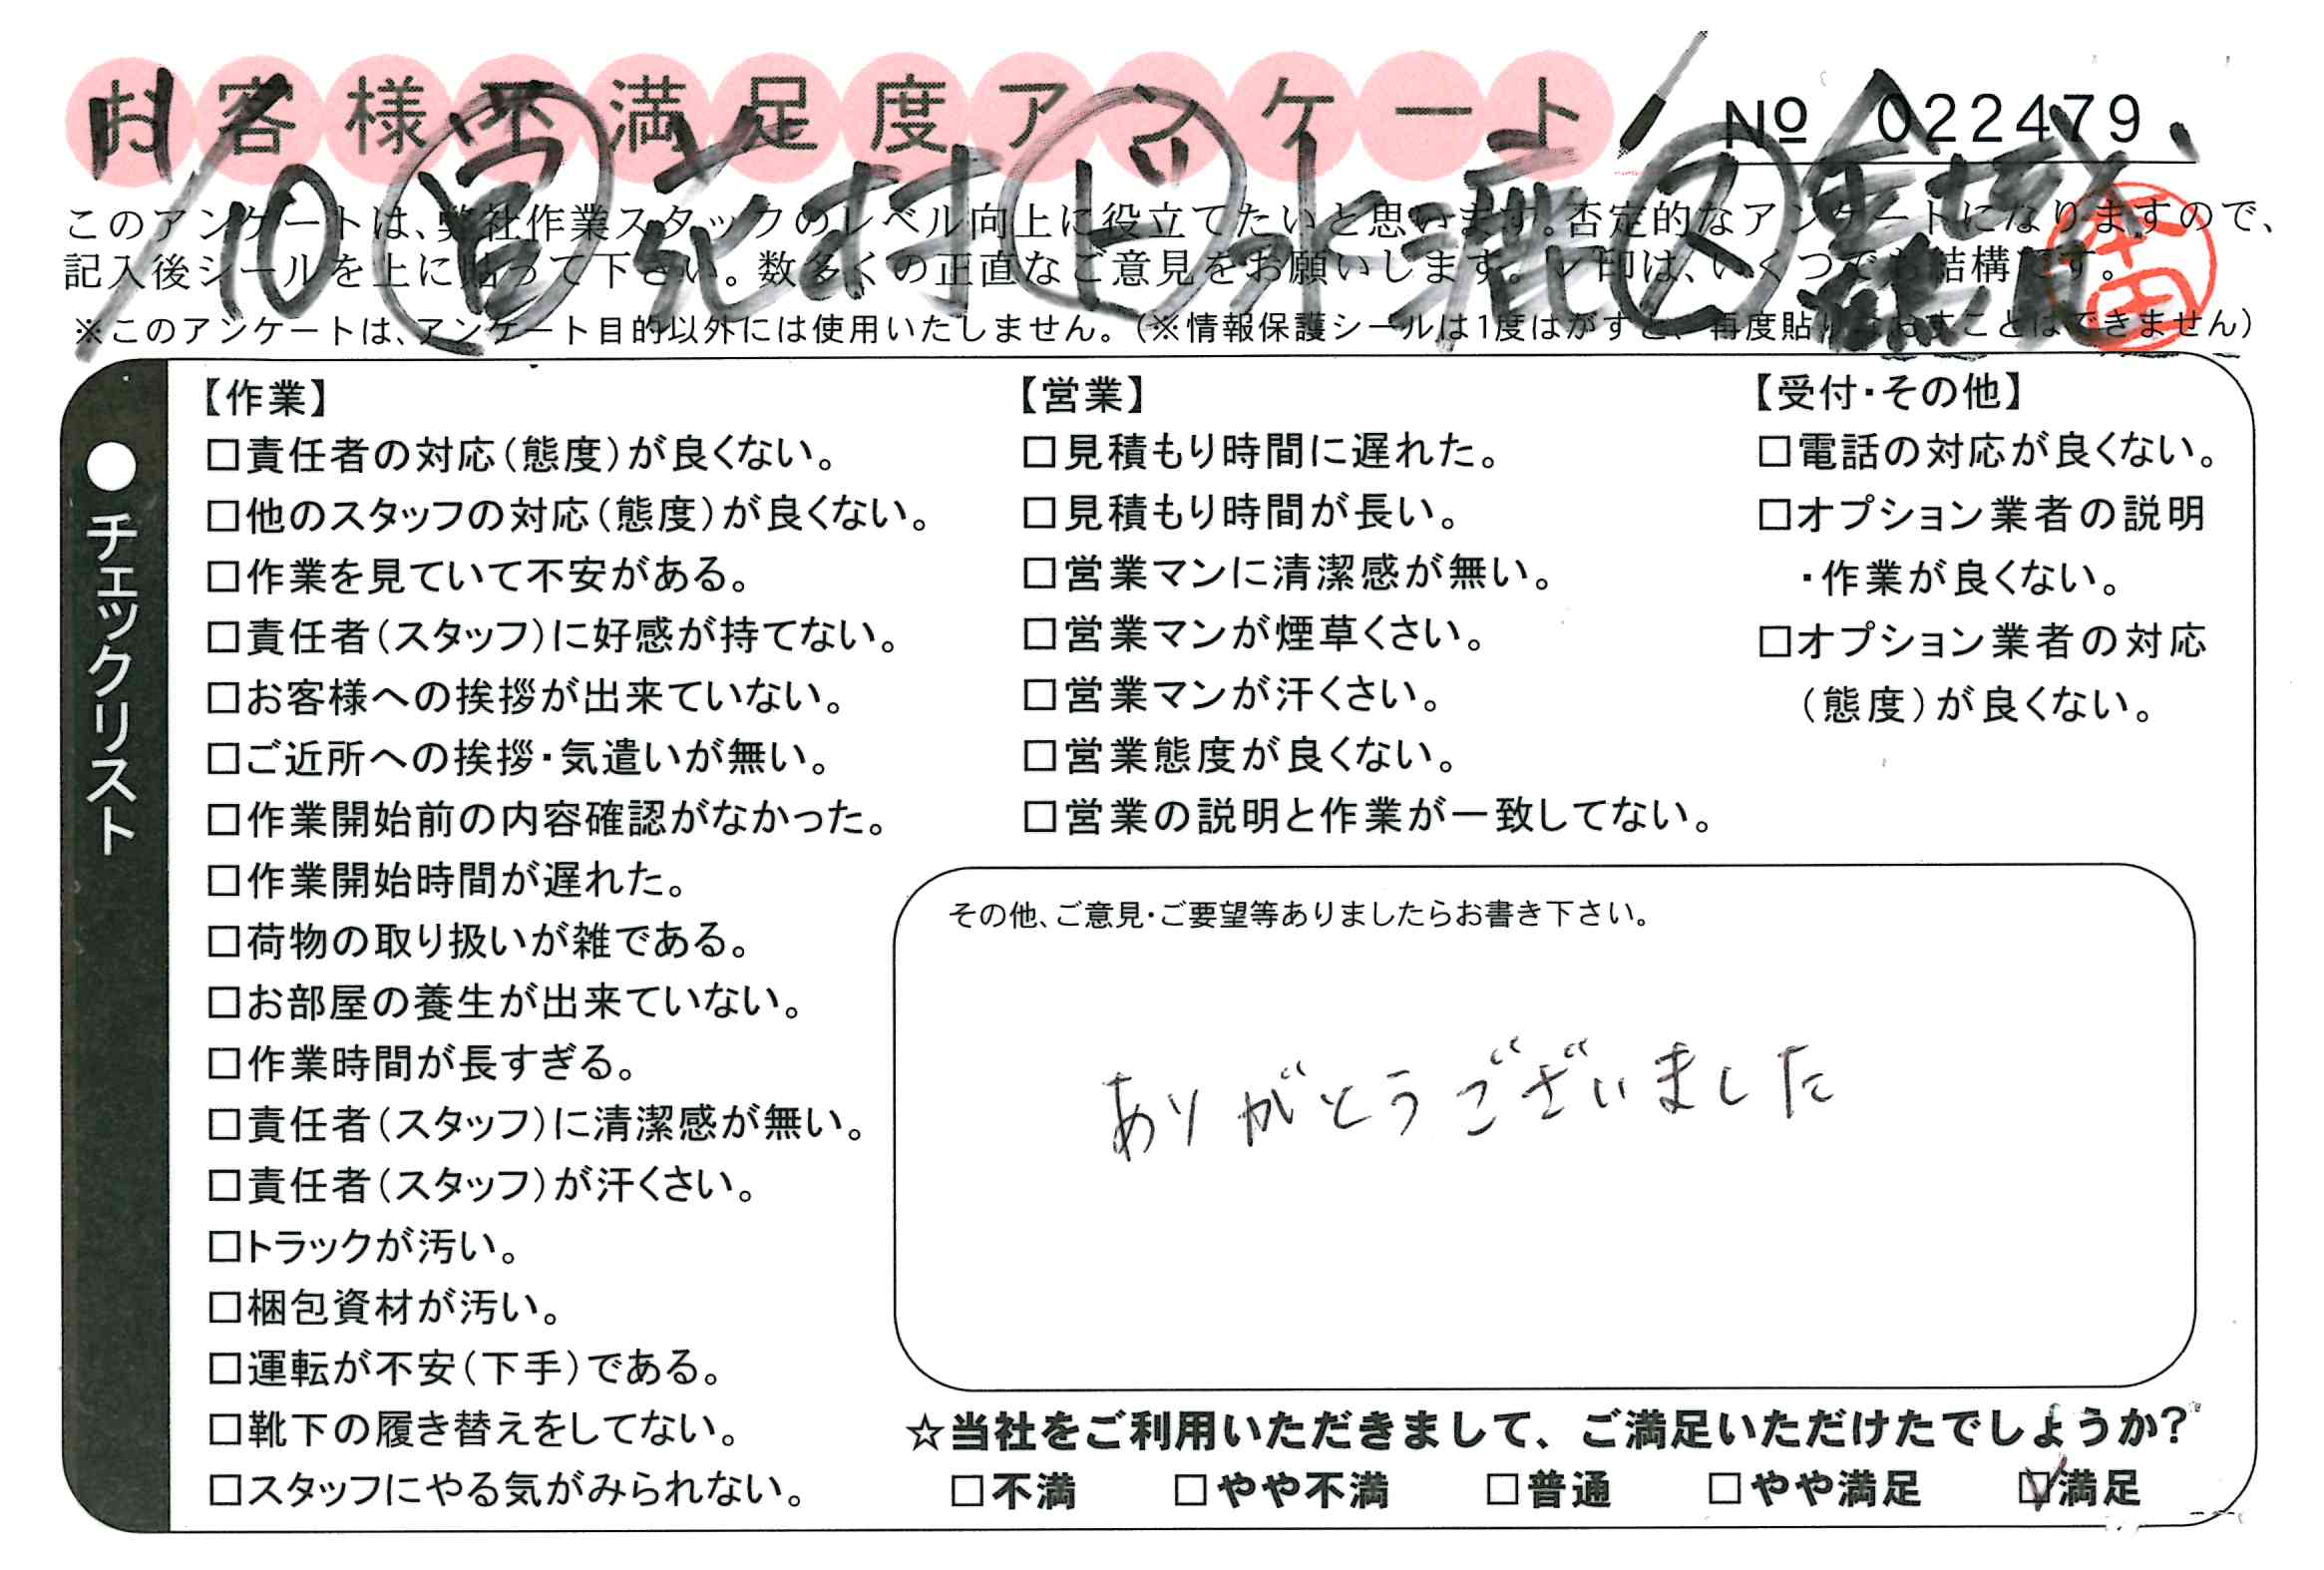 お客様不満足度アンケート
No 022479
11/10 営 花村 リ 水瀧 ス 金城
本田
このアンケートは、弊社作業スタッフのレベル向上に役立てたいと思います。否定的なアンケートになりますので、
記入後シールを上に貼って下さい。数多くの正直なご意見をお願いします。レ印は、いくつでも結構です。
※このアンケートは、アンケート目的以外には使用いたしません。(※情報保護シールは1度はがすと、再度貼りなおすことはできません)
●チェックリスト
【作業】
□責任者の対応(態度)が良くない。
□他のスタッフの対応(態度)が良くない。
□作業を見ていて不安がある。
□責任者(スタッフ)に好感が持てない。
□お客様への挨拶が出来ていない。
□ご近所への挨拶・気遣いが無い。
□作業開始前の内容確認がなかった。
□作業開始時間が遅れた。
□荷物の取り扱いが雑である。
□お部屋の養生が出来ていない。
□作業時間が長すぎる。
□責任者(スタッフ)に清潔感が無い。
□責任者(スタッフ)が汗くさい。
□トラックが汚い。
□梱包資材が汚い。
□運転が不安(下手)である。
□靴下の履き替えをしてない。
□スタッフにやる気がみられない。
【営業】
□見積もり時間に遅れた。
□見積もり時間が長い。
□営業マンに清潔感が無い。
□営業マンが煙草くさい。
□営業マンが汗くさい。
□営業態度が良くない。
□営業の説明と作業が一致してない。
【受付・その他】
□電話の対応が良くない。
□オプション業者の説明
・作業が良くない。
□オプション業者の対応
(態度)が良くない。
その他、ご意見・ご要望等ありましたらお書き下さい。
ありがとうございました
☆当社をご利用いただきまして、ご満足いただけたでしょうか?
□不満 □やや不満 □普通 □やや満足 ☑満足